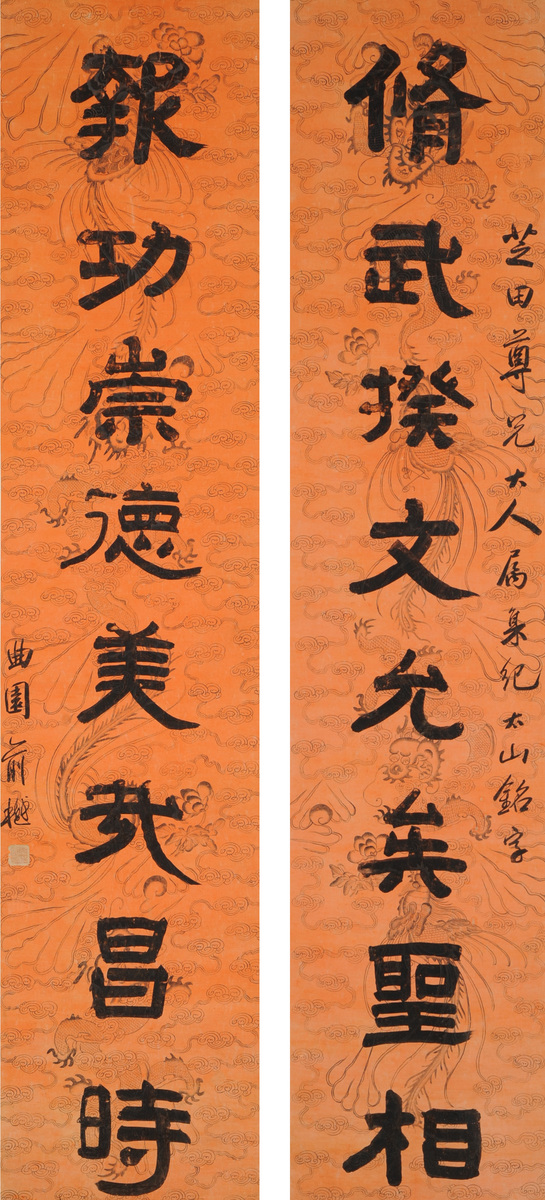 芝田尊兄大人属集紀太山銘字
脩武揆文允矣聖相
報功崇德美哉昌時
曲園俞樾